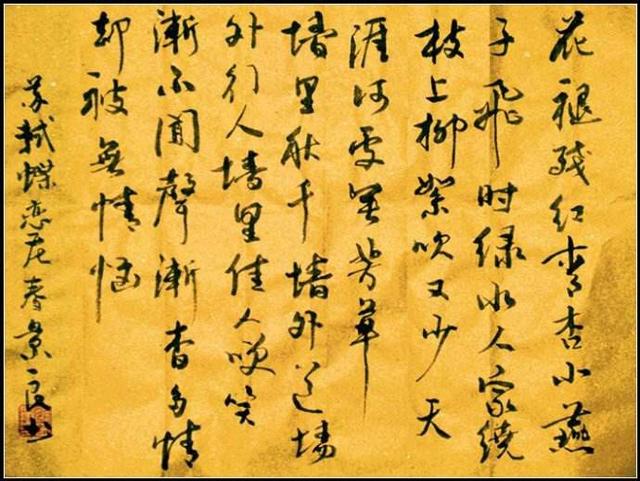 花褪残红青杏小燕
子飞时绿水人家绕
枝上柳絮吹又少天
涯何处无芳草
墙里秋千墙外道墙
外行人墙里佳人咲笑
渐不闻聲渐杳多情
却被無情恼
苏轼蝶恋花春景 良书